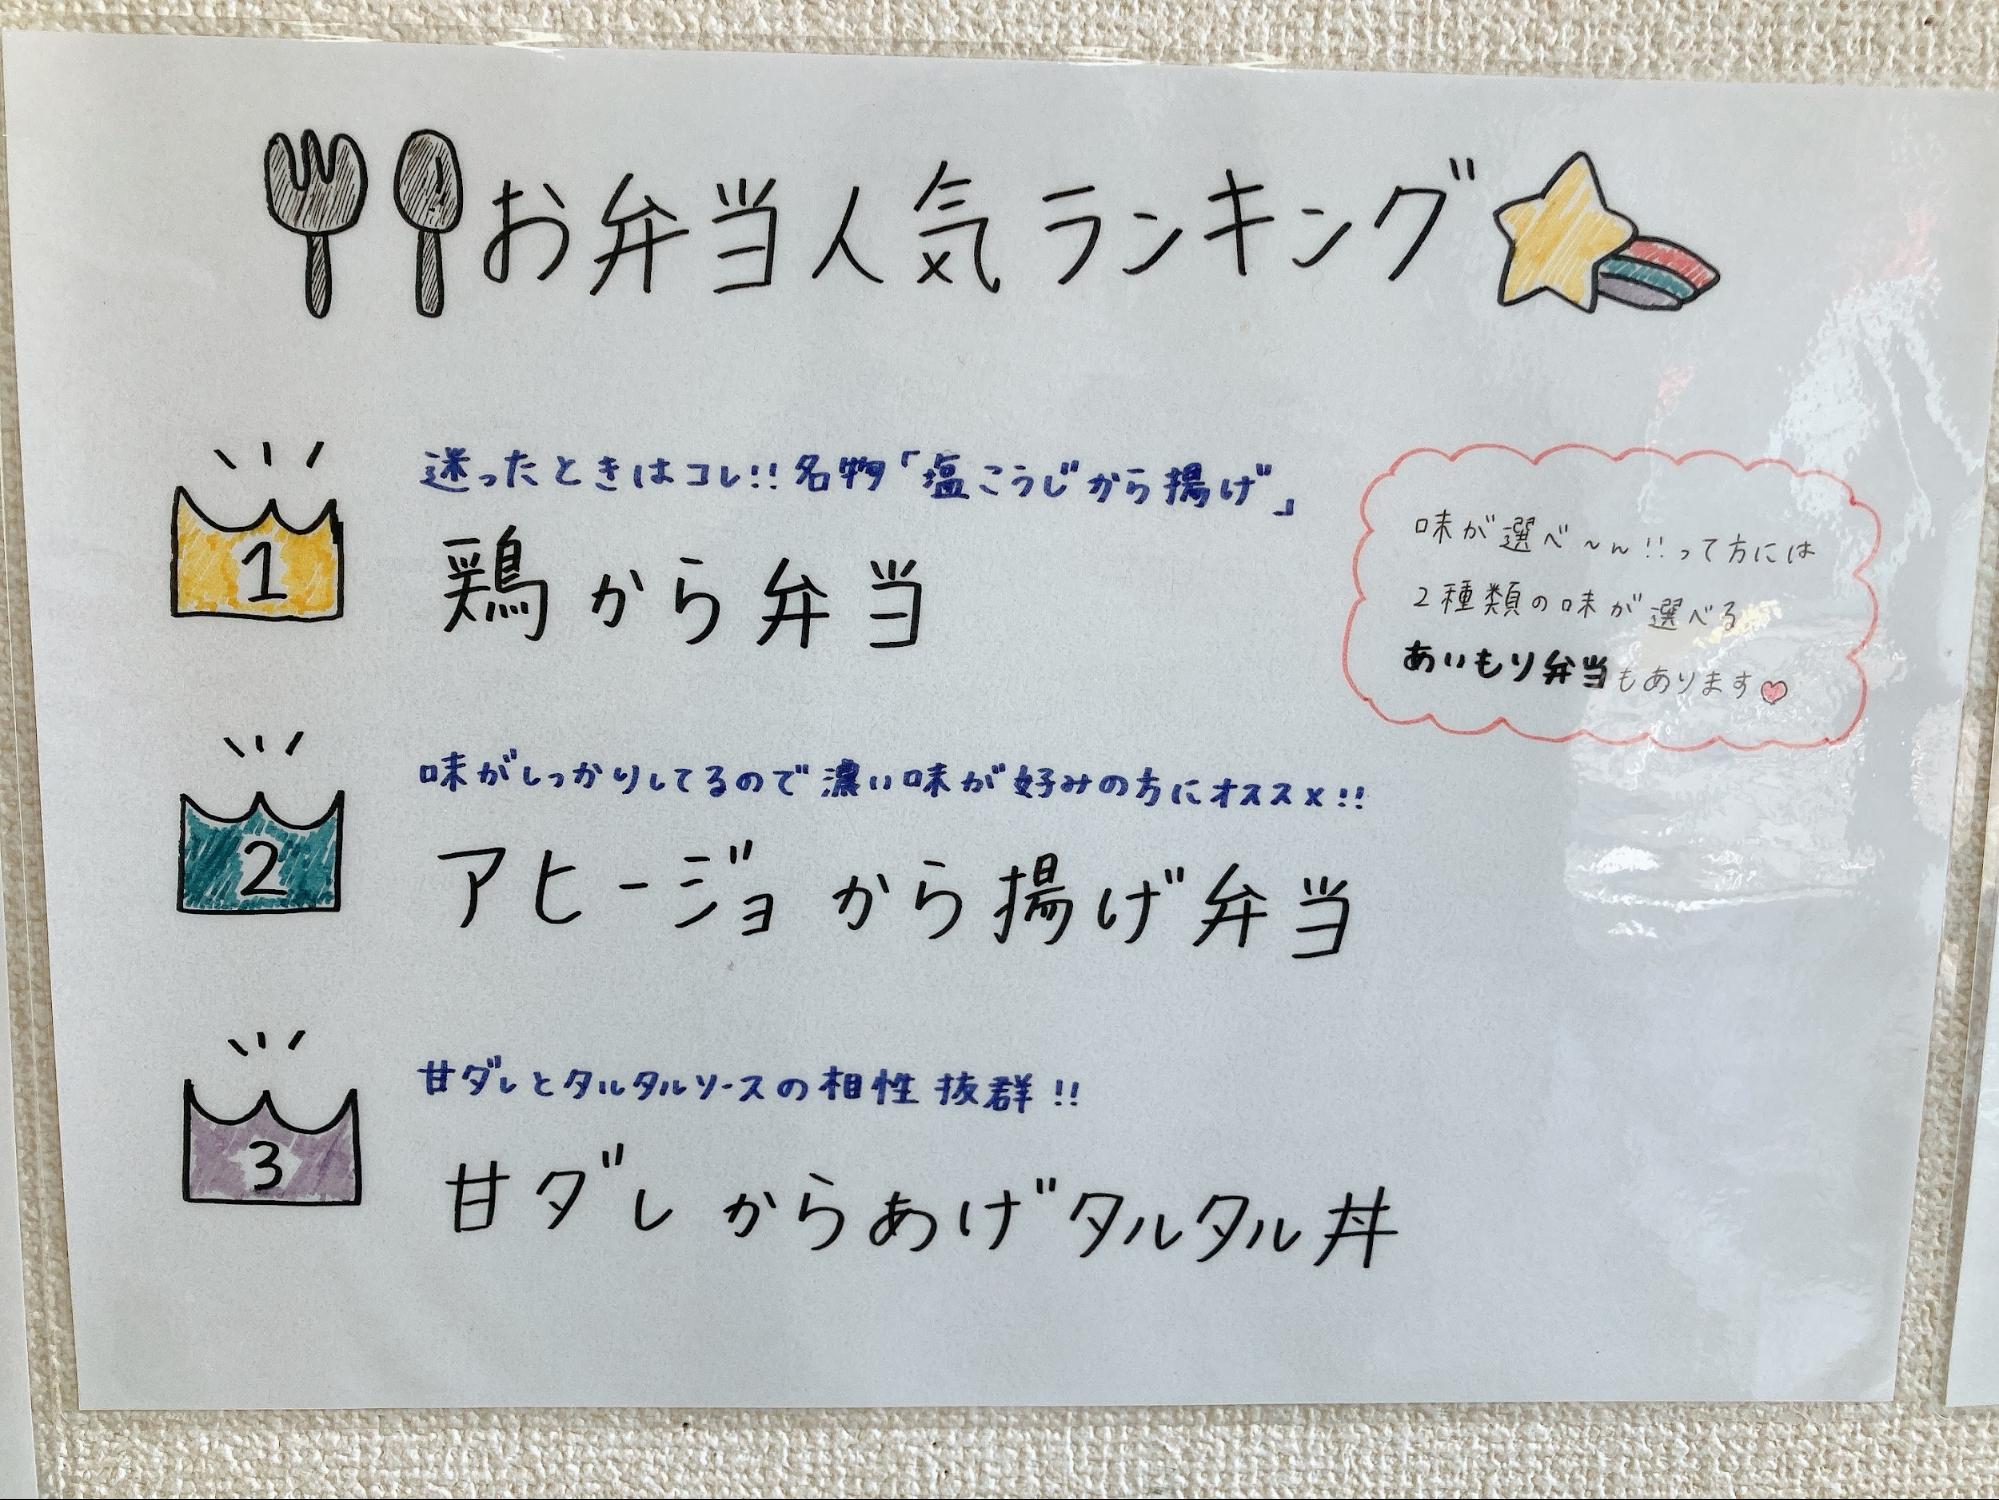 お弁当人気ランキング
1
迷ったときはコレ!!名物「塩こうじから揚げ」
鶏から弁当
味が選べ〜ん!!って方には
2種類の味が選べる
あいもり弁当もあります
2
味がしっかりしてるので濃い味が好みの方にオススメ!!
アヒージョから揚げ弁当
3
甘ダレとタルタルソースの相性抜群!!
甘ダレからあげタルタル丼